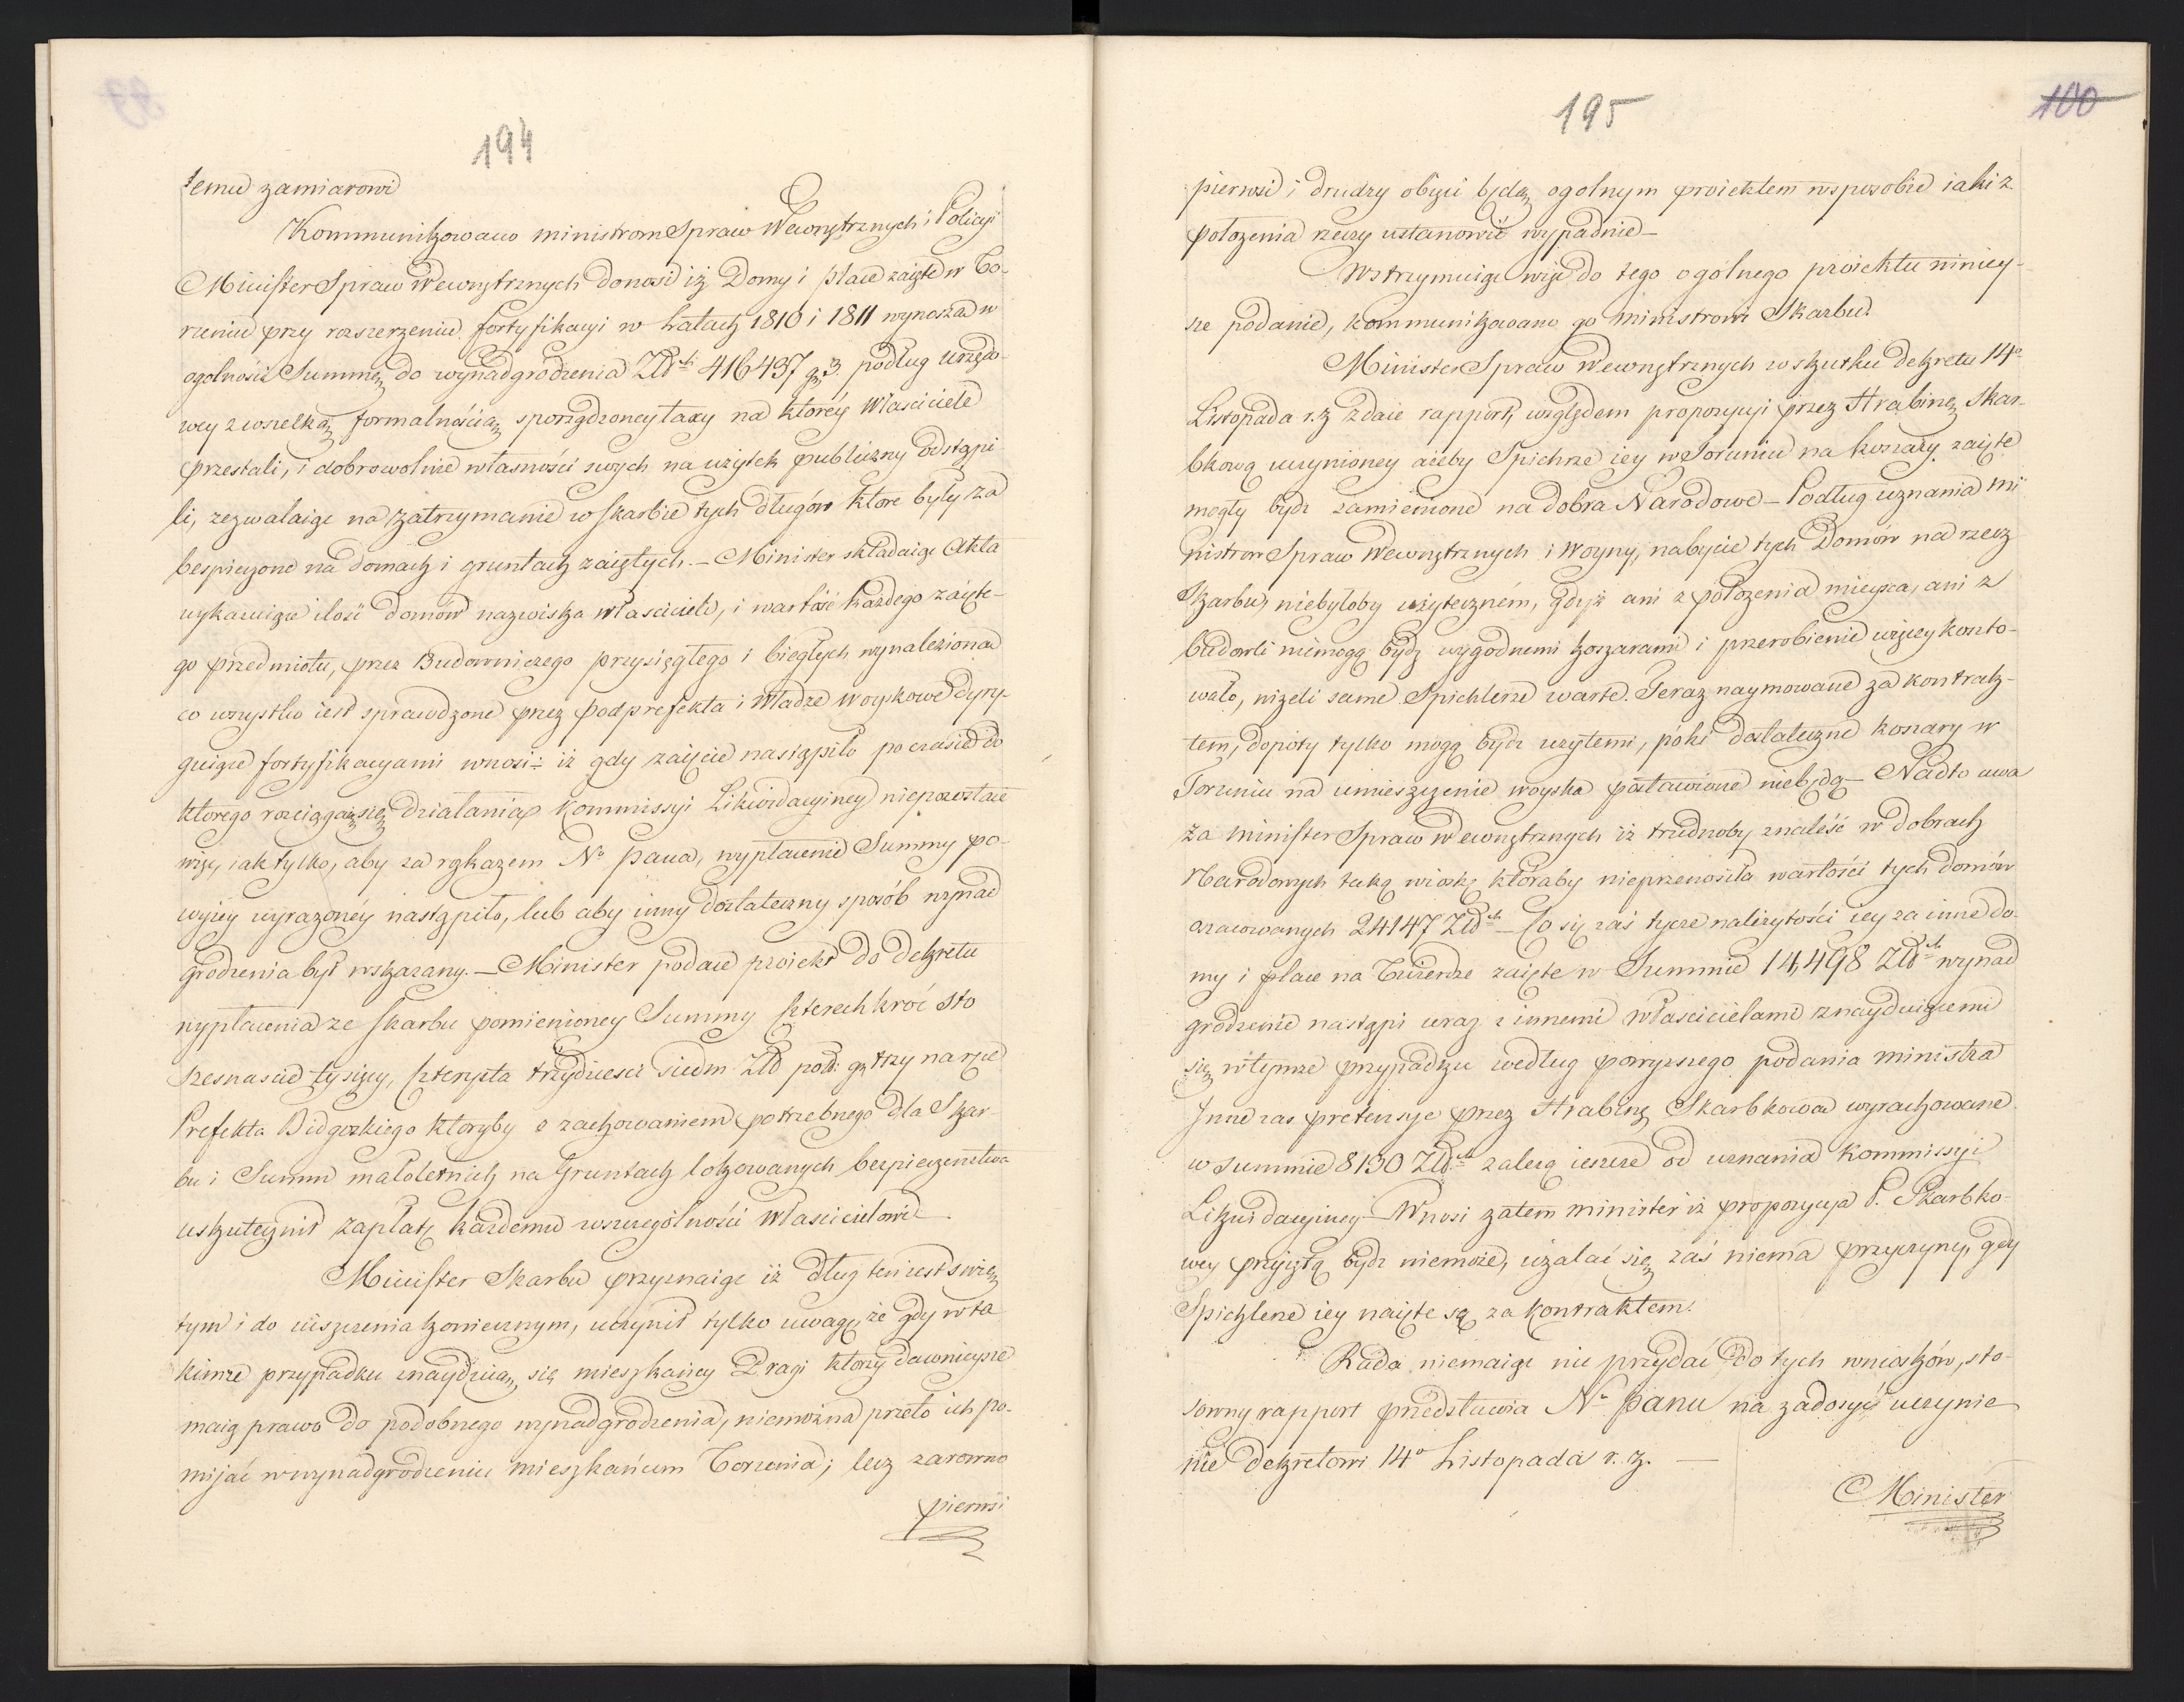 194
temu zamiarowi
Kommunikowano ministrom Spraw Wewnętrznych i Policyi
Minister Spraw Wewnętrznych donosi iż Domy i place zaięte w To-
runiu przy rozszerzeniu fortyfikacyi w Latach 1810 i 1811 wynoszą w
ogolności Summę do wynadgrodzenia Złłch 416437 gr 3. podług urzędo-
wey z wszelką formalnością sporządzoney taxy na ktoréy Właściciele
przestali, i dobrowolnie własności swych na użytek publiczny odstąpi-
li, zezwalaiąc na zatrzymanie w skarbie tych długów ktore były za
bespieczone na domach i gruntach zaiętych. — Minister składaiąc Akta
wykazuiące ilość domów nazwiska właścicieli, i wartość każdego zaięte-
go przedmiotu, przez Budowniczego przysięgłego i biegłych wynaleziona
co wszystko iest sprawdzone przez podprefekta i Władze Woyskowe dyry-
guiące fortyfikacyami wnosi: iż gdy zaięcie nastąpiło po czasie do
ktorego rozciągaią się działania Kommissyi Likwidacyiney niepozostaie
więc, iak tylko, aby za rozkazem No Pana, wypłacenie Summy po-
wyżéy wyrażonéy nastąpiło, lub aby inny dostateczny sposób wynad
grodzenia był wskazany. — Minister podaie proiekt do dekretu
wypłacenia ze skarbu pomienioney Summy czterechkroć sto
szesnaście tysięcy, czterysta trzydzieści siedm Złł pol: gr trzy na ręce
Prefekta Bidgoskiego ktoryby z zachowaniem potrzebnego dla Skar-
bu i Summ małoletnich na Gruntach lokowanych bezpieczenstwa
uskutecznił zapłatę każdemu wszczególności Właścicielowi.
Minister Skarbu przyznaiąc iż dług ten iest świę-
tym i do uiszczenia koniecznym, uczynił tylko uwagę, że gdy w ta
kimże przypadku znayduią się mieszkańcy Pragi ktorzy dawnieysze
maią prawo do podobnego wynadgrodzenia, niemożna przeto ich po-
mijać w wynadgrodzeniu mieszkańcom Torunia; lecz zarowno
pierwsi
195
100
pierwsi i drudzy obięci będą ogolnym proiektem wsposobie iaki z
położenia rzeczy ustanowić wypadnie —
Wstrzymuiąc więc do tego ogólnego proiektu niniey-
sze podanie, kommunikowano go Ministrowi Skarbu.
Minister Spraw Wewnętrznych w skutku dekretu 14o
Listopada r. z. zdaie rapport, względem propozycyi przez Hrabinę Skar-
bkową uczynioney ażeby Spichrze iey w Toruniu na koszary zaięte
mogły bydz zamienione na dobra Narodowe — Podług uznania Mi
nistrow Spraw Wewnętrznych i Woyny, nabycie tych Domów na rzecz
Skarbu, niebyłoby użyteczném, gdyż ani z położenia mieysca, ani z
budowli niemogą bydz wygodnemi koszarami i przerobienie więcey koszto-
wało, niżeli same Spichlerze warte. Teraz naymowane za kontrak-
tem, dopóty tylko mogą bydz użytemi, póki dostateczne koszary w
Toruniu na umieszczenie woyska postawione niebędą — Nadto uwa
ża Minister Spraw Wewnętrznych iż trudnoby znaleść w dobrach
Narodowych taką wioskę któraby nieprzenosiła wartości tych domów
oszacowanych 24147 Złłch — Co się zaś tycze należytości iey za inne do-
my i place na Twierdze zaięte w Summie 14,498 Złłch wynad
grodzenie nastąpi wraz z innemi właścicielami znayduiącemi
się w tymże przypadku według powyższego podania Ministra
Inne zas pretensye przez Hrabinę Skarbkowa wyrachowane
w summie 8130 Złłch zależą ieszcze od uznania Kommissyi
Likwidacyiney — Wnosi zatem minister iż propozycya P. Skarbko-
wey przyiętą bydz niemoże, użalać się zaś niema przyczyny, gdy
Spichlerze iey naięte są za kontraktem.
Rada niemaiąc nic przydać do tych wniosków, sto-
sowny rapport przedstawia No Panu na zadosyć uczynie
nie dekretowi 14o Listopada r. z. —
Minister